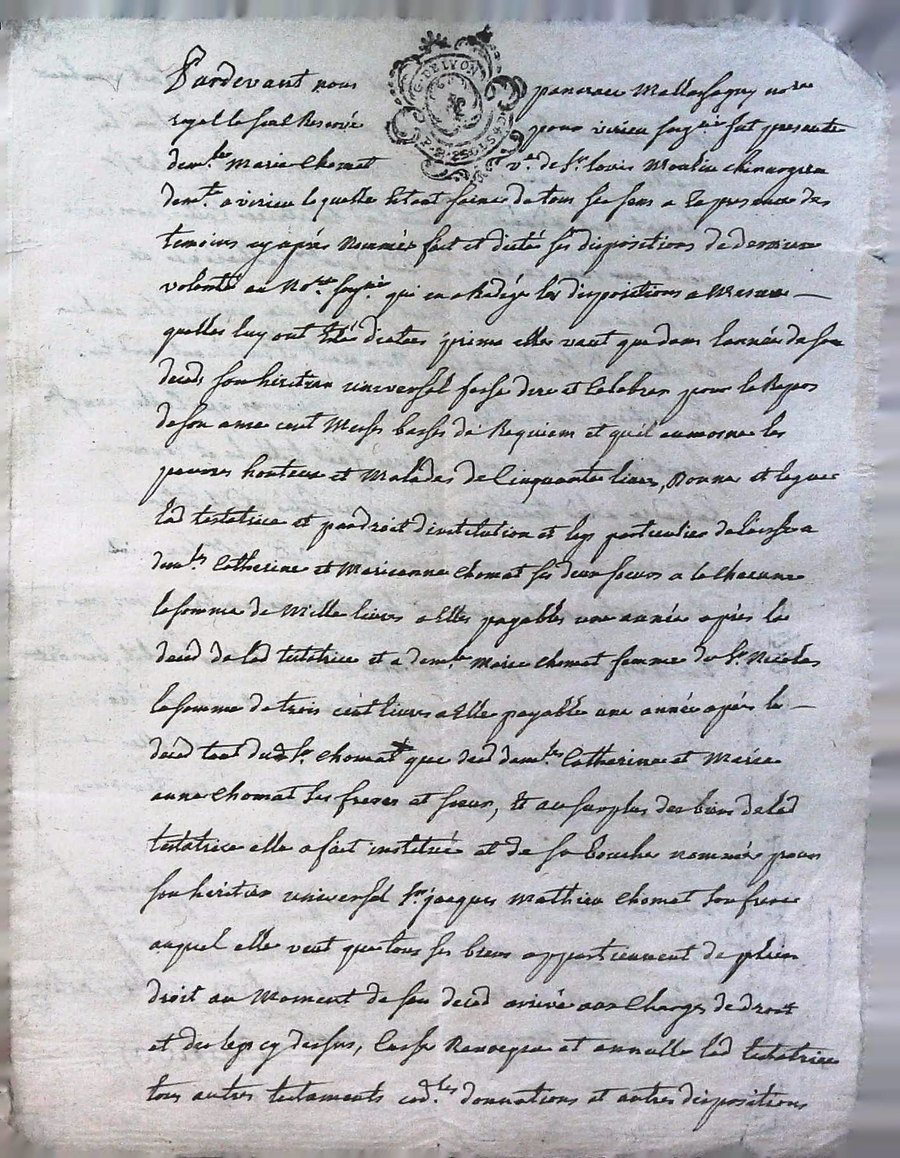 G. DE LYON
Pardevant nous pancrace notre
royal le seul Reservé pour virieu soussigné fut presente
demlle Marie Chomat ve de Sr louis Moulin chirurgien
demt a virieu laquelle Etant saine de tous ses sens a la presence des
temoins cy après Nommés fait et dicté ses dispositions de derniere
volonté au Nore soussigné qui en a Redigé les dispositions a Mesure
quelles luy ont été dictées primo elle veut que dans l'année de son
deces son heritier universel fasse dire et Celebrer pour le Repos
de son ame cent Messes basses de Requiem et quil aumone les
pauvres honteux et Malades de Cinquante livres, Donne et legue
lad testatrice et par droit d'institution et legs particulier delaisse a
demlles Catherine et Marieanne Chomat ses deux soeurs a Chacune
la somme de Mille livres a Elles payables une année après le
deces de lad testatrice et a demlle Marie Chomat femme du Sr Nicolas
la somme de trois cent livres a Elle payable une année après le
deces tant dud Sr Chomat que des demlles Catherine et Marie
anne Chomat Ses freres et soeurs, Et au surplus des biens de lad
testatrice elle a fait institué et de sa bouche nommé pour
son heritier universel Sr jacques Mathieu Chomat Son frere
auquel elle veut que tous ses biens appartiennent de plein
droit au Moment de son deces arrivé aux Charges de droit
et des legs cy dessus, Casse Revoque et annulle lad testatrice
tous autres testaments codlles donnations et autres dispositions